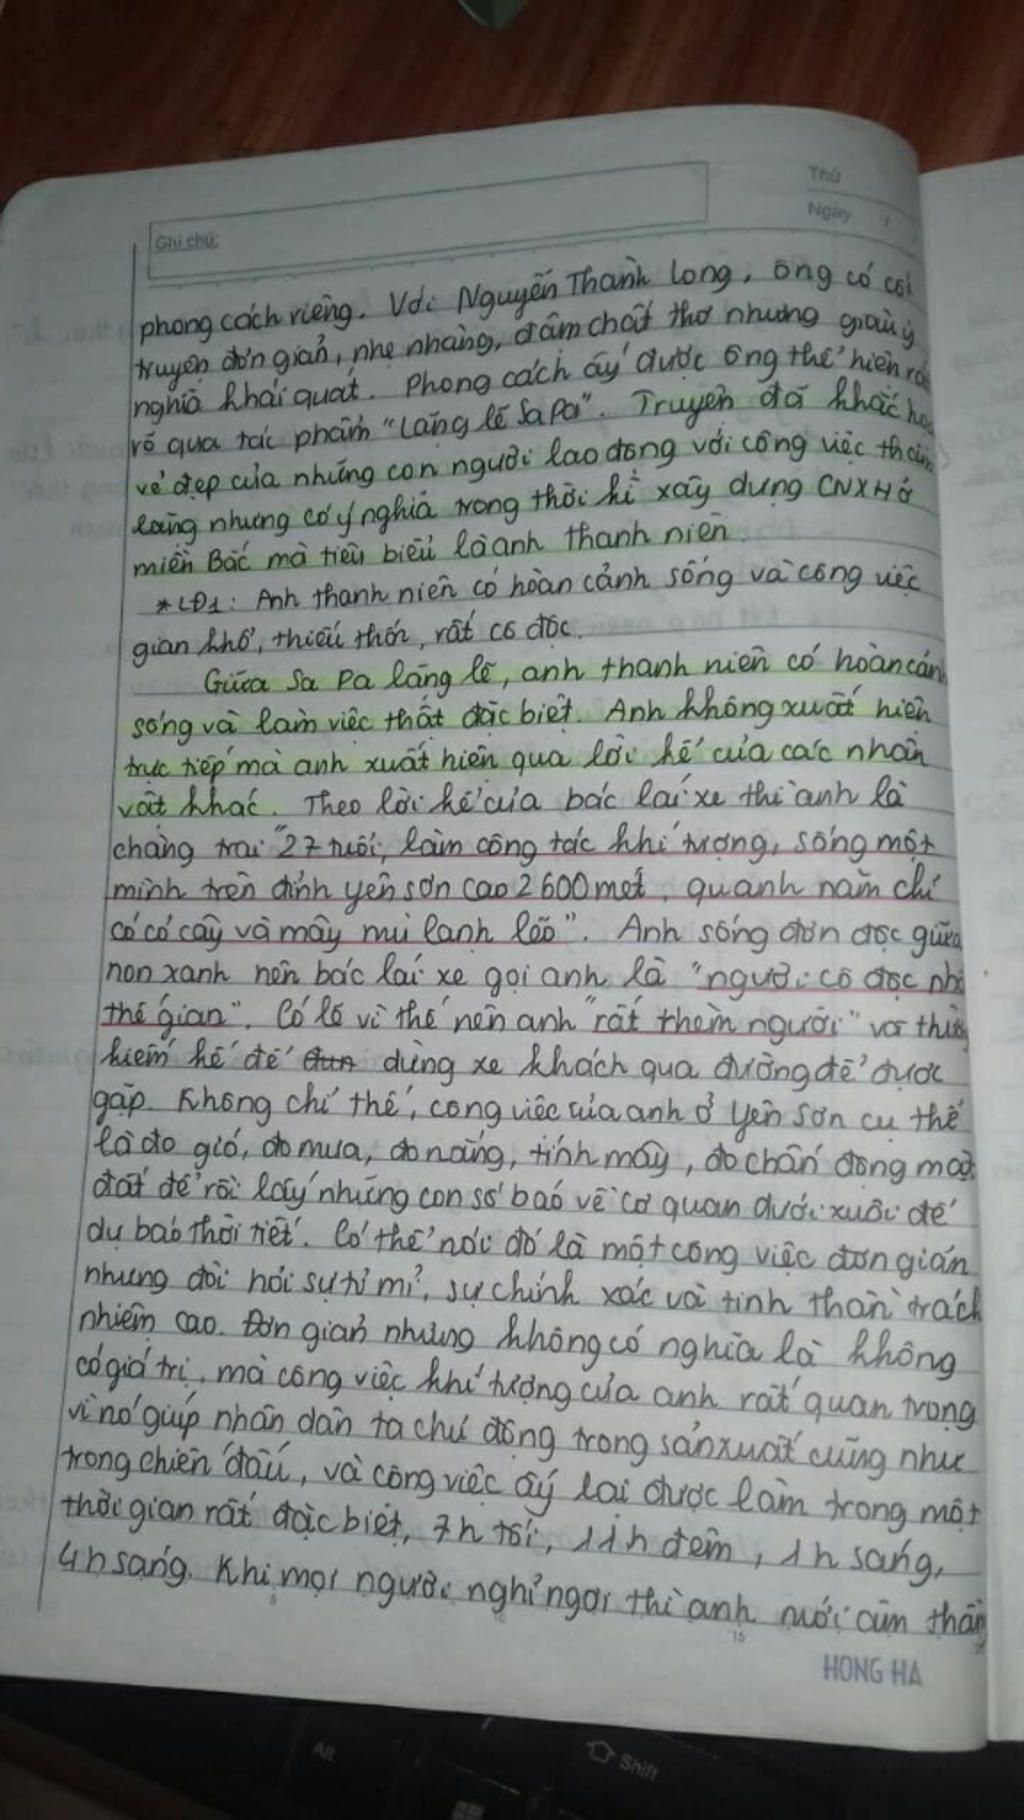 Thứ
Ngày / /
Ghi chú:
phong cách riêng. Với Nguyễn Thành Long, ông có cốt
truyện đơn giản, nhẹ nhàng, đậm chất thơ nhưng giàu ý
nghĩa khái quát. Phong cách ấy được ông thể hiện rất
rõ qua tác phẩm "Lặng lẽ Sa Pa". Truyện đã khắc hoạ
vẻ đẹp của những con người lao động với công việc thầm
lặng nhưng có ý nghĩa trong thời kì xây dựng CNXH ở
miền Bắc mà tiêu biểu là anh thanh niên.
* LĐ1: Anh thanh niên có hoàn cảnh sống và công việc
gian khổ, thiếu thốn, rất cô độc.
Giữa Sa Pa lặng lẽ, anh thanh niên có hoàn cảnh
sống và làm việc thật đặc biệt. Anh không xuất hiện
trực tiếp mà anh xuất hiện qua lời kể của các nhân
vật khác. Theo lời kể của bác lái xe thì anh là
chàng trai "27 tuổi, làm công tác khí tượng, sống một
mình trên đỉnh yên sơn cao 2600 mét, quanh năm chỉ
có cỏ cây và mây mù lạnh lẽo". Anh sống đơn độc giữa
non xanh nên bác lái xe gọi anh là "người cô độc nhất
thế gian". Có lẽ vì thế nên anh "rất thèm người" và
kiếm kế để dừng xe khách qua đường để được
gặp. Không chỉ thế, công việc của anh ở Yên Sơn cụ thể
là đo gió, đo mưa, đo nắng, tính mây, đo chấn động mặt
đất để rồi lấy những con số báo về cơ quan dưới xuôi để
dự báo thời tiết. Có thể nói đó là một công việc đơn giản
nhưng đòi hỏi sự tỉ mỉ, sự chính xác và tinh thần trách
nhiệm cao. Đơn giản nhưng không có nghĩa là không
có giá trị, mà công việc khí tượng của anh rất quan trọng
vì nó giúp nhân dân ta chủ động trong sản xuất cũng như
trong chiến đấu, và công việc ấy lại được làm trong một
thời gian rất đặc biệt, 7h tối, 11h đêm, 1h sáng,
4h sáng. Khi mọi người nghỉ ngơi thì anh mới
5
10
15
HONG HA
Alt
Shift